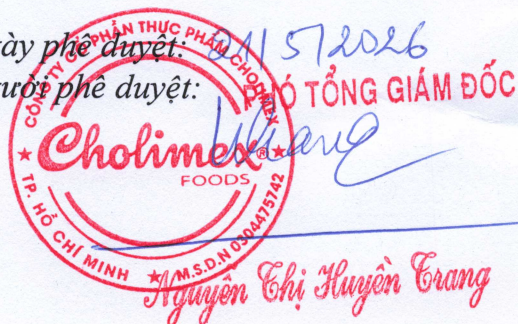 ày phê duyệt: 21/5/2026
ười phê duyệt:
PHÓ TỔNG GIÁM ĐỐC
CÔNG TY CỔ PHẦN THỰC PHẨM CHOLIMEX
Cholimex®
FOODS
TP. HỒ CHÍ MINH
M.S.D.N 0304475742
Nguyễn Thị Huyền Trang